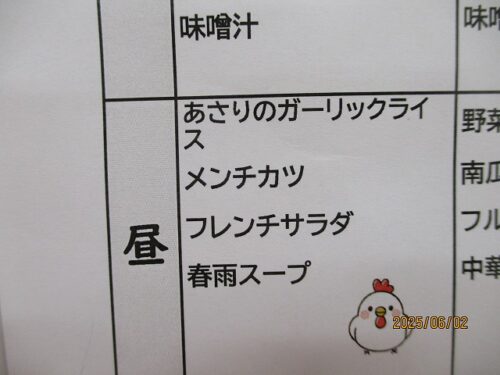 味噌汁
味噌
昼
あさりのガーリックライ
ス
メンチカツ
フレンチサラダ
春雨スープ
野菜
南瓜
フル
中華
2025/06/02